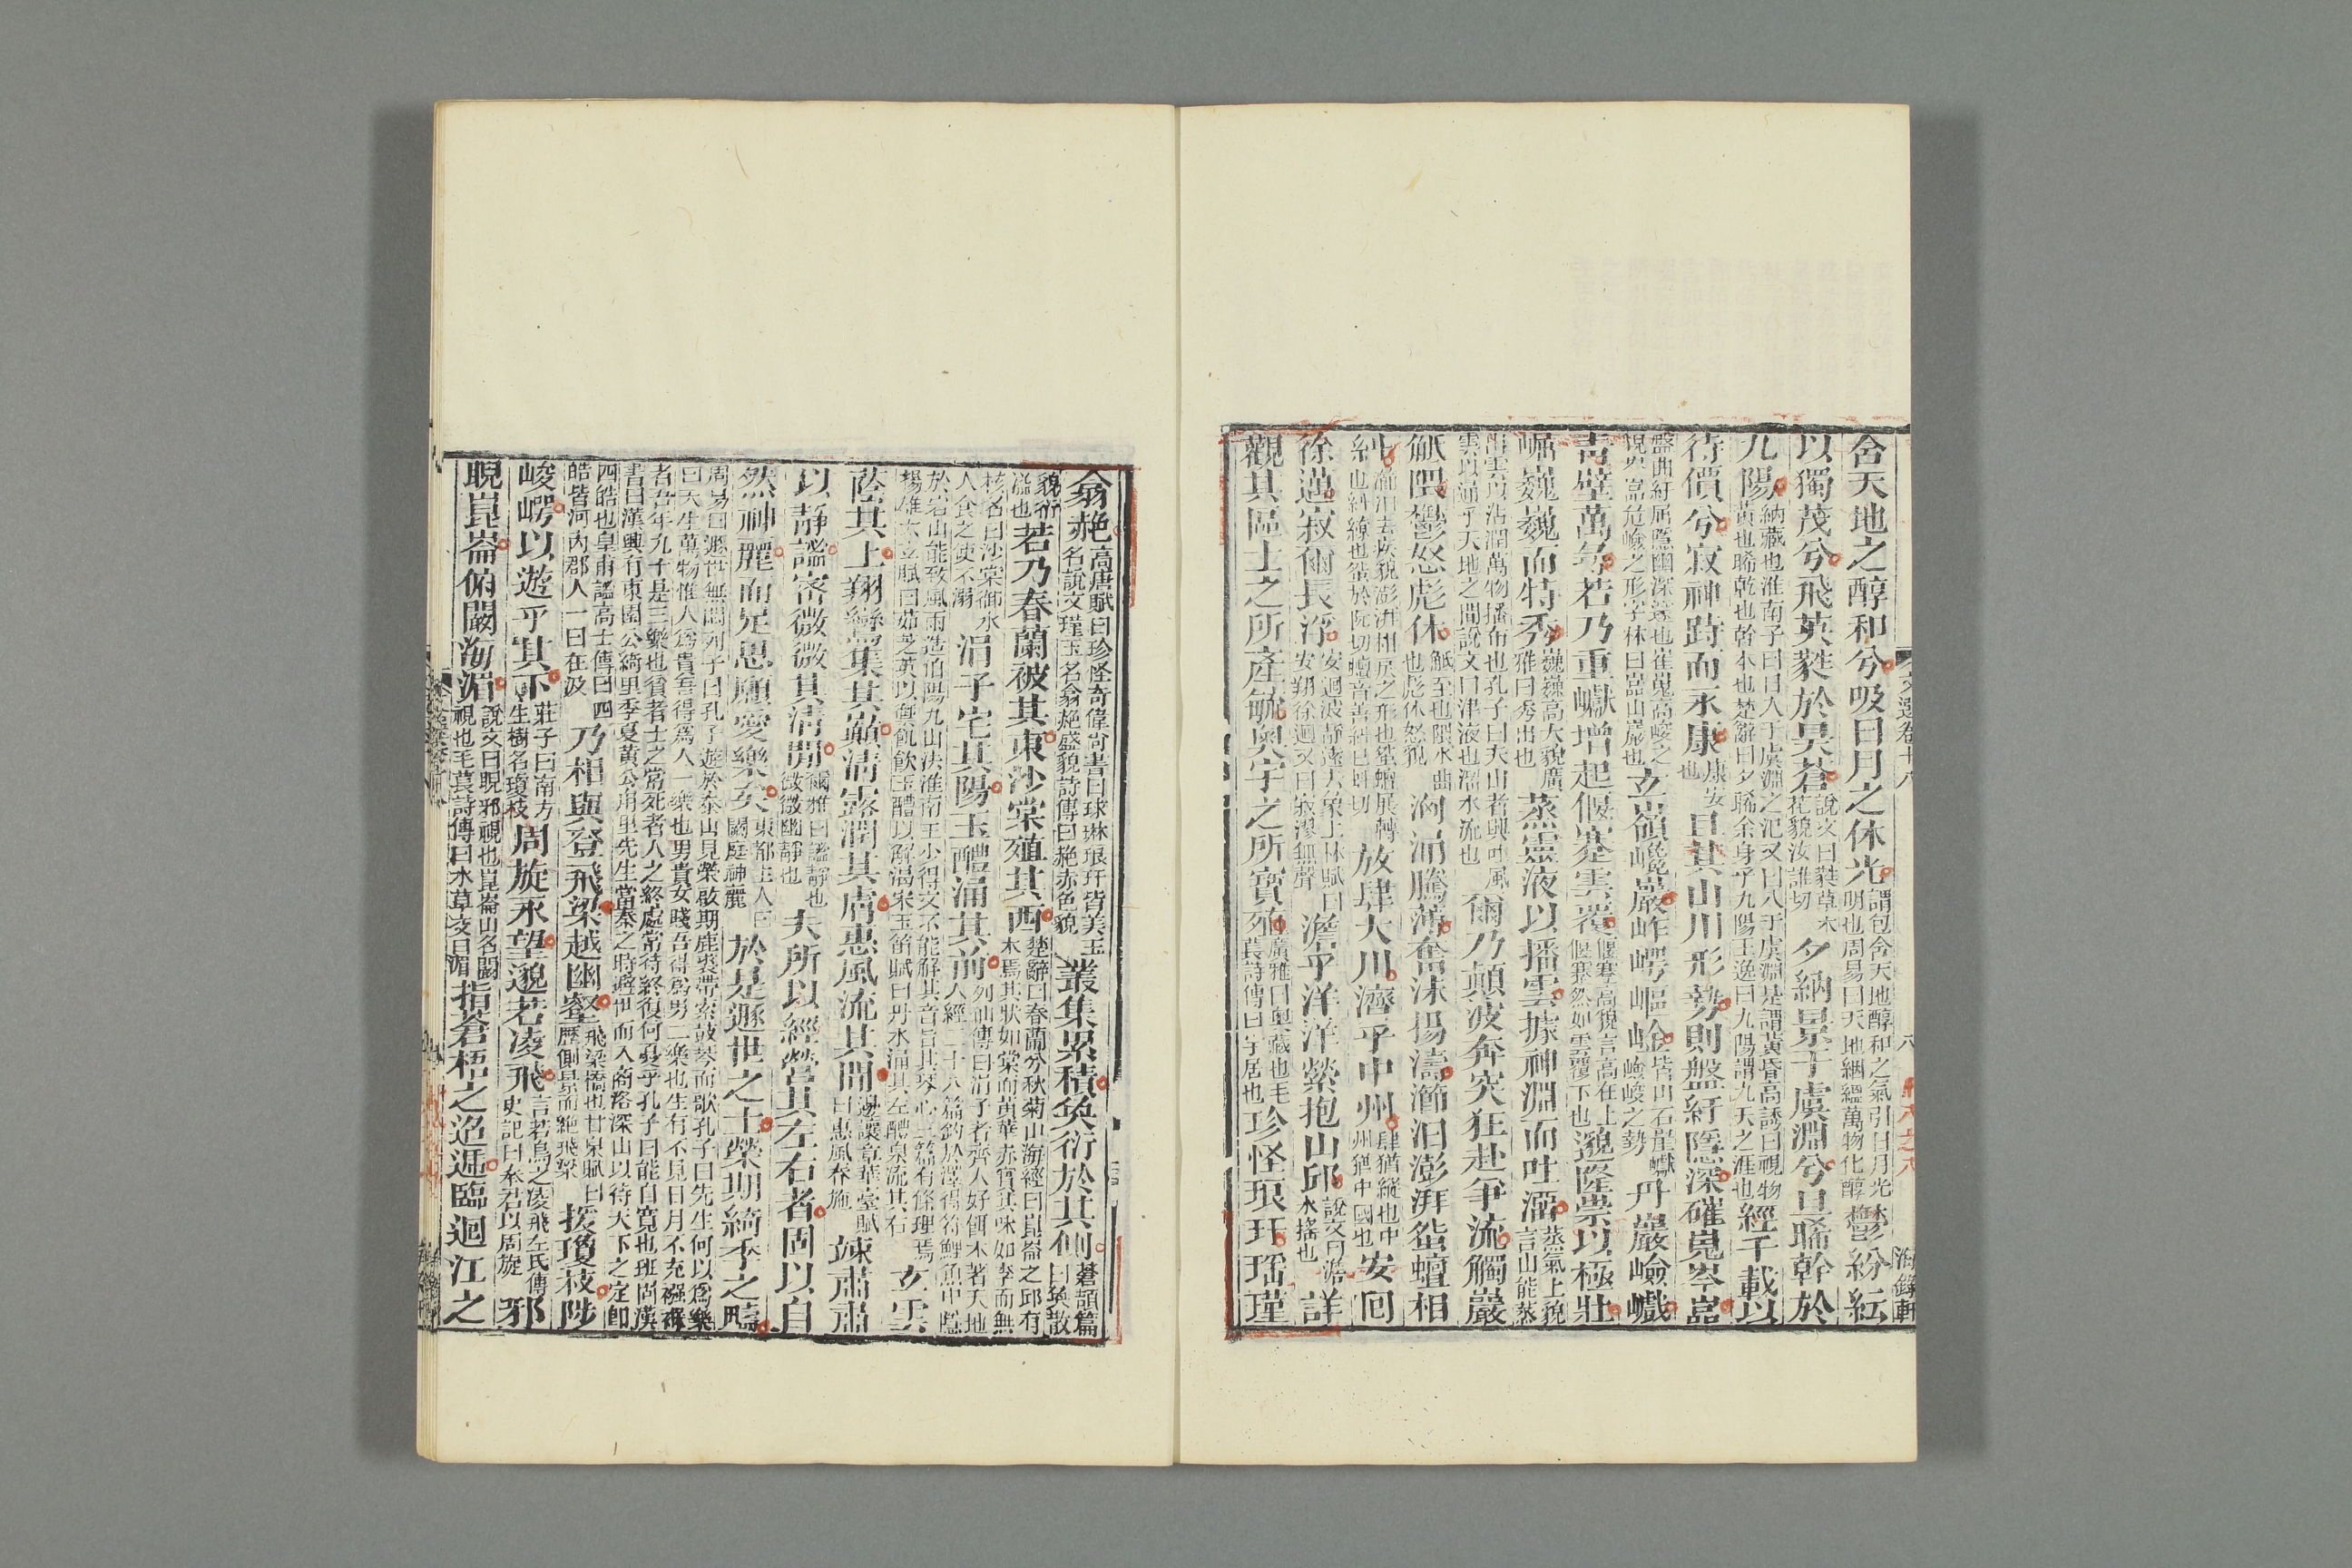 文選卷十八 八 海錄軒
含天地之醇和兮吸日月之休光謂包含天地醇和之氣引日月光明也周易曰天地絪縕萬物化醇鬱紛紜
以獨茂兮飛英蕤於昊蒼說文曰蕤草木花貌汝誰切夕納景于虞淵兮旦晞幹於
九陽納藏也淮南子曰日入于虞淵之汜又曰入于虞淵是謂黃昏高誘曰視物黃也晞乾也幹本也楚辭曰夕晞余身乎九陽王逸曰九陽謂九天之涯也經千載以
待價兮寂神跱而永康康安也且其山川形勢則盤紆隱深磪嵬岑嵓
盤曲紆屈隱幽深邃也崔嵬高峻之貌岑嵓危嶮之形字林曰嵓山巖也玄嶺巉巖岞崿嶇崯皆山石崖巘嶮峻之勢丹巖嶮巇
青壁萬尋若乃重巘增起偃蹇雲覆偃蹇高貌言高在上偃蹇然如雲覆下也邈隆崇以極壯
崛巍巍而特秀巍巍高大貌廣雅曰秀出也蒸靈液以播雲據神淵而吐溜蒸氣上貌言山能蒸
出雲以沾潤萬物播布也孔子曰夫山者興吐風雲以通乎天地之間說文曰津液也溜水流也爾乃顛波奔突狂赴爭流觸巖
觝隈鬱怒彪休觝至也隈水曲也彪休怒貌洶涌騰薄奮沫揚濤瀄汩澎湃蛩蟺相
糾瀄汩去疾貌澎湃相戾之形也蛩蟺展轉也糾繚也蛩於阮切蟺音善糾已虯切放肆大川濟乎中州肆猶縱也中州猶中國也安回
徐邁寂爾長浮安迴波靜遠去象上林賦曰安翔徐迴又曰寂漻無聲澹乎洋洋縈抱山邱說文曰澹水搖也詳
觀其區土之所產毓奧宇之所寶殖廣雅曰奧藏也毛萇詩傳曰宇居也珍怪琅玕瑤瑾
翕赩高唐賦曰珍怪奇偉尚書曰球琳琅玕皆美玉名說文瑾玉名翕赩盛貌詩傳曰赩赤色貌叢集累積奐衍於其側蒼頡篇曰奐散
貌衍溢也若乃春蘭被其東沙棠殖其西楚辭曰春蘭兮秋菊山海經曰崑崙之邱有木焉其狀如棠而黃華赤實其味如李而無
核名曰沙棠御水人食之使不溺涓子宅其陽玉醴涌其前列仙傳曰涓子者齊人好餌术著天地人經三十八篇釣於澤得符鯉魚中隱
於宕山能致風雨造伯陽九山法淮南王少得文不能解其音旨其琴心三篇有條理焉揚雄太玄賦曰茹芝英以禦飢飲玉醴以解渴宋玉笛賦曰丹水涌其左醴泉流其右玄雲
蔭其上翔鸞集其巔清露潤其膚惠風流其間邊讓章華臺賦曰惠風春施竦肅肅
以靜謐密微微其清閒爾雅曰謐靜也微微幽靜也夫所以經營其左右者固以自
然神麗而足思願愛樂矣東都主人曰闕庭神麗於是遯世之士榮期綺季之疇
周易曰遯世無悶列子曰孔子遊於泰山見榮啟期鹿裘帶索鼓琴而歌孔子曰先生何以為樂曰天生萬物惟人為貴吾得為人一樂也男貴女賤吾得為男二樂也生有不見日月不免襁褓
者吾年九十是三樂也貧者士之常死者人之終處常待終復何憂乎孔子曰能自寬也班固漢書曰漢興有東園公綺里季夏黃公甪里先生當秦之時避世而入商洛深山以待天下之定即
四皓也皇甫謐高士傳曰四皓皆河內郡人一曰在汲乃相與登飛梁越幽壑飛梁橋也甘泉賦曰歷倒景而絕飛梁援瓊枝陟
峻崿以遊乎其下莊子曰南方生樹名瓊枝周旋永望邈若凌飛言若鳥之凌飛左氏傳史記曰奉君以周旋邪
睨崑崙俯闞海湄說文曰睨邪視也崑崙山名闞視也毛萇詩傳曰水草交曰湄指蒼梧之迢遞臨迴江之